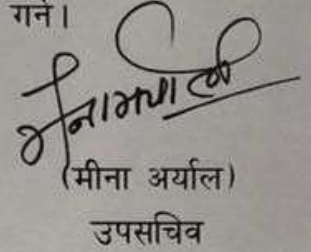 गर्ने।
(मीना अर्याल)
उपसचिव